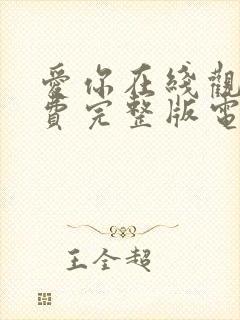 爱你在綫觀
費完整版電
王全超